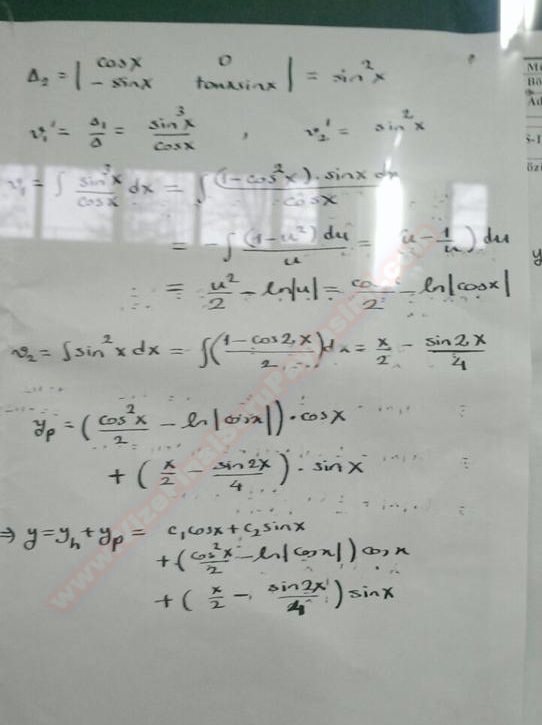 Δ₂ = | cosx 0 |
| -sinx tanxsinx | = sin²x
v₁' = Δ₁/Δ = sin³x/cosx , v₂' = sin²x
v₁ = ∫ sin³x/cosx dx = ∫ (1-cos²x).sinx dx/cosx
= -∫ (1-u²)du/u = u - 1/u) du
= u²/2 - ln|u| = co /2 - ln|cosx|
v₂ = ∫sin²x dx = ∫(1-cos2x/2)dx = x/2 - sin2x/4
yp = (cos²x/2 - ln|cosx|).cosx
+ (x/2 - sin2x/4).sinx
⇒ y = yh + yp = c₁cosx + c₂sinx
+ (cos²x/2 - ln|cosx|)cosx
+ (x/2 - sin2x/4)sinx
Ad
y